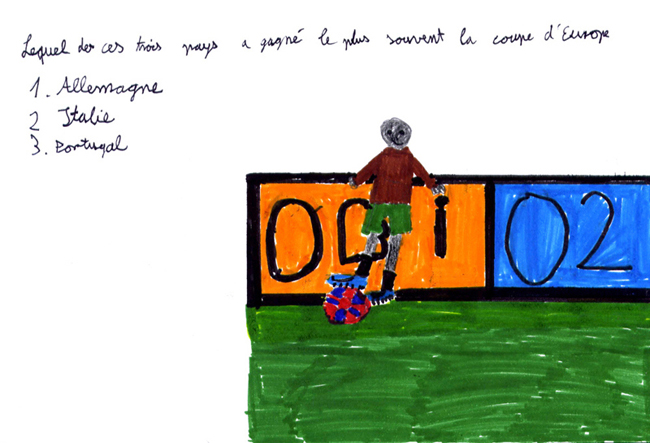 Lequel des ces trois pays a gagné le plus souvent la coupe d'Europe
1. Allemagne
2 Italie
3. Portugal
OBi O2